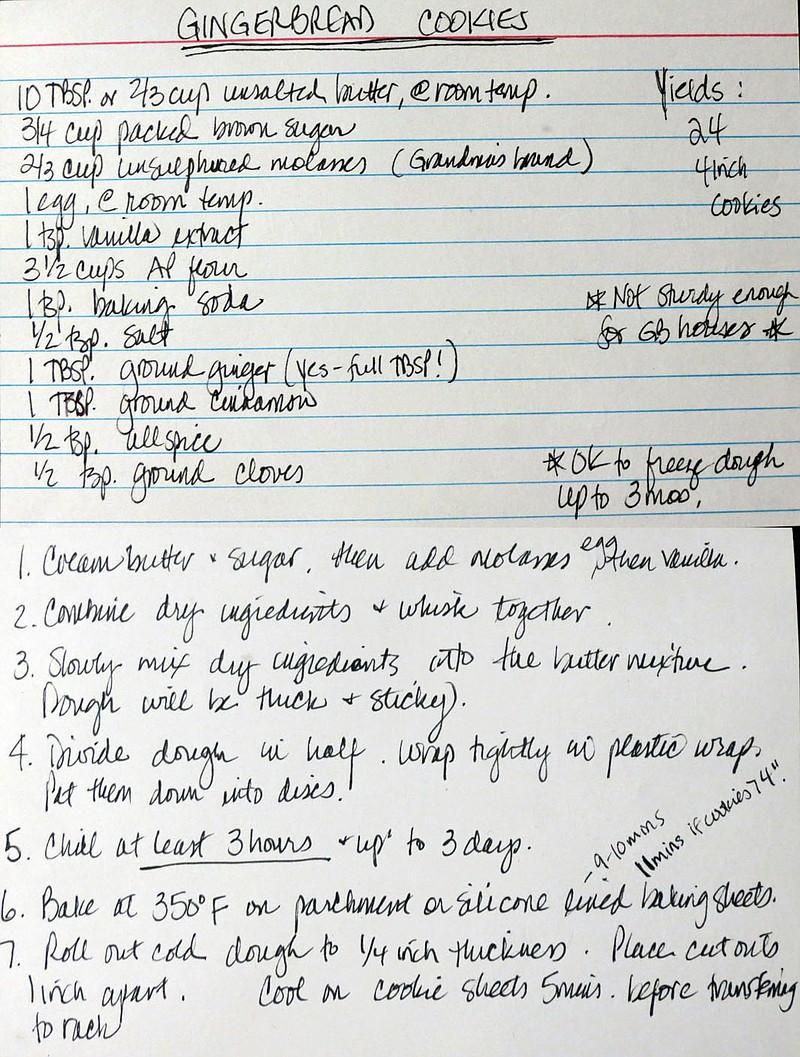 GINGERBREAD COOKIES
10 TBSP. or 2/3 cup unsalted butter, @ room temp.
3/4 cup packed brown sugar
2/3 cup unsulphured molasses (Grandma's brand)
1 egg, @ room temp.
1 tsp. vanilla extract
3 1/2 cups AP flour
1 tsp. baking soda
1/2 tsp. salt
1 TBSP. ground ginger (yes - full TBSP!)
1 TBSP. ground cinnamon
1/2 tsp. allspice
1/2 tsp. ground cloves
Yields:
24
4 inch
cookies
* Not sturdy enough
for GB houses *
* OK to freeze dough
up to 3 mos.
1. Cream butter + sugar, then add molasses egg, then vanilla.
2. Combine dry ingredients + whisk together.
3. Slowly mix dry ingredients into the butter mixture.
Dough will be thick + sticky).
4. Divide dough in half. Wrap tightly in plastic wrap.
Pat them down into discs.
5. Chill at least 3 hours + up to 3 days.
- 9-10 mins
11 mins if cookies 7 4".
6. Bake at 350°F on parchment or silicone lined baking sheets.
7. Roll out cold dough to 1/4 inch thickness. Place cutouts
1 inch apart. Cool on cookie sheets 5 mins. before transfering
to rack